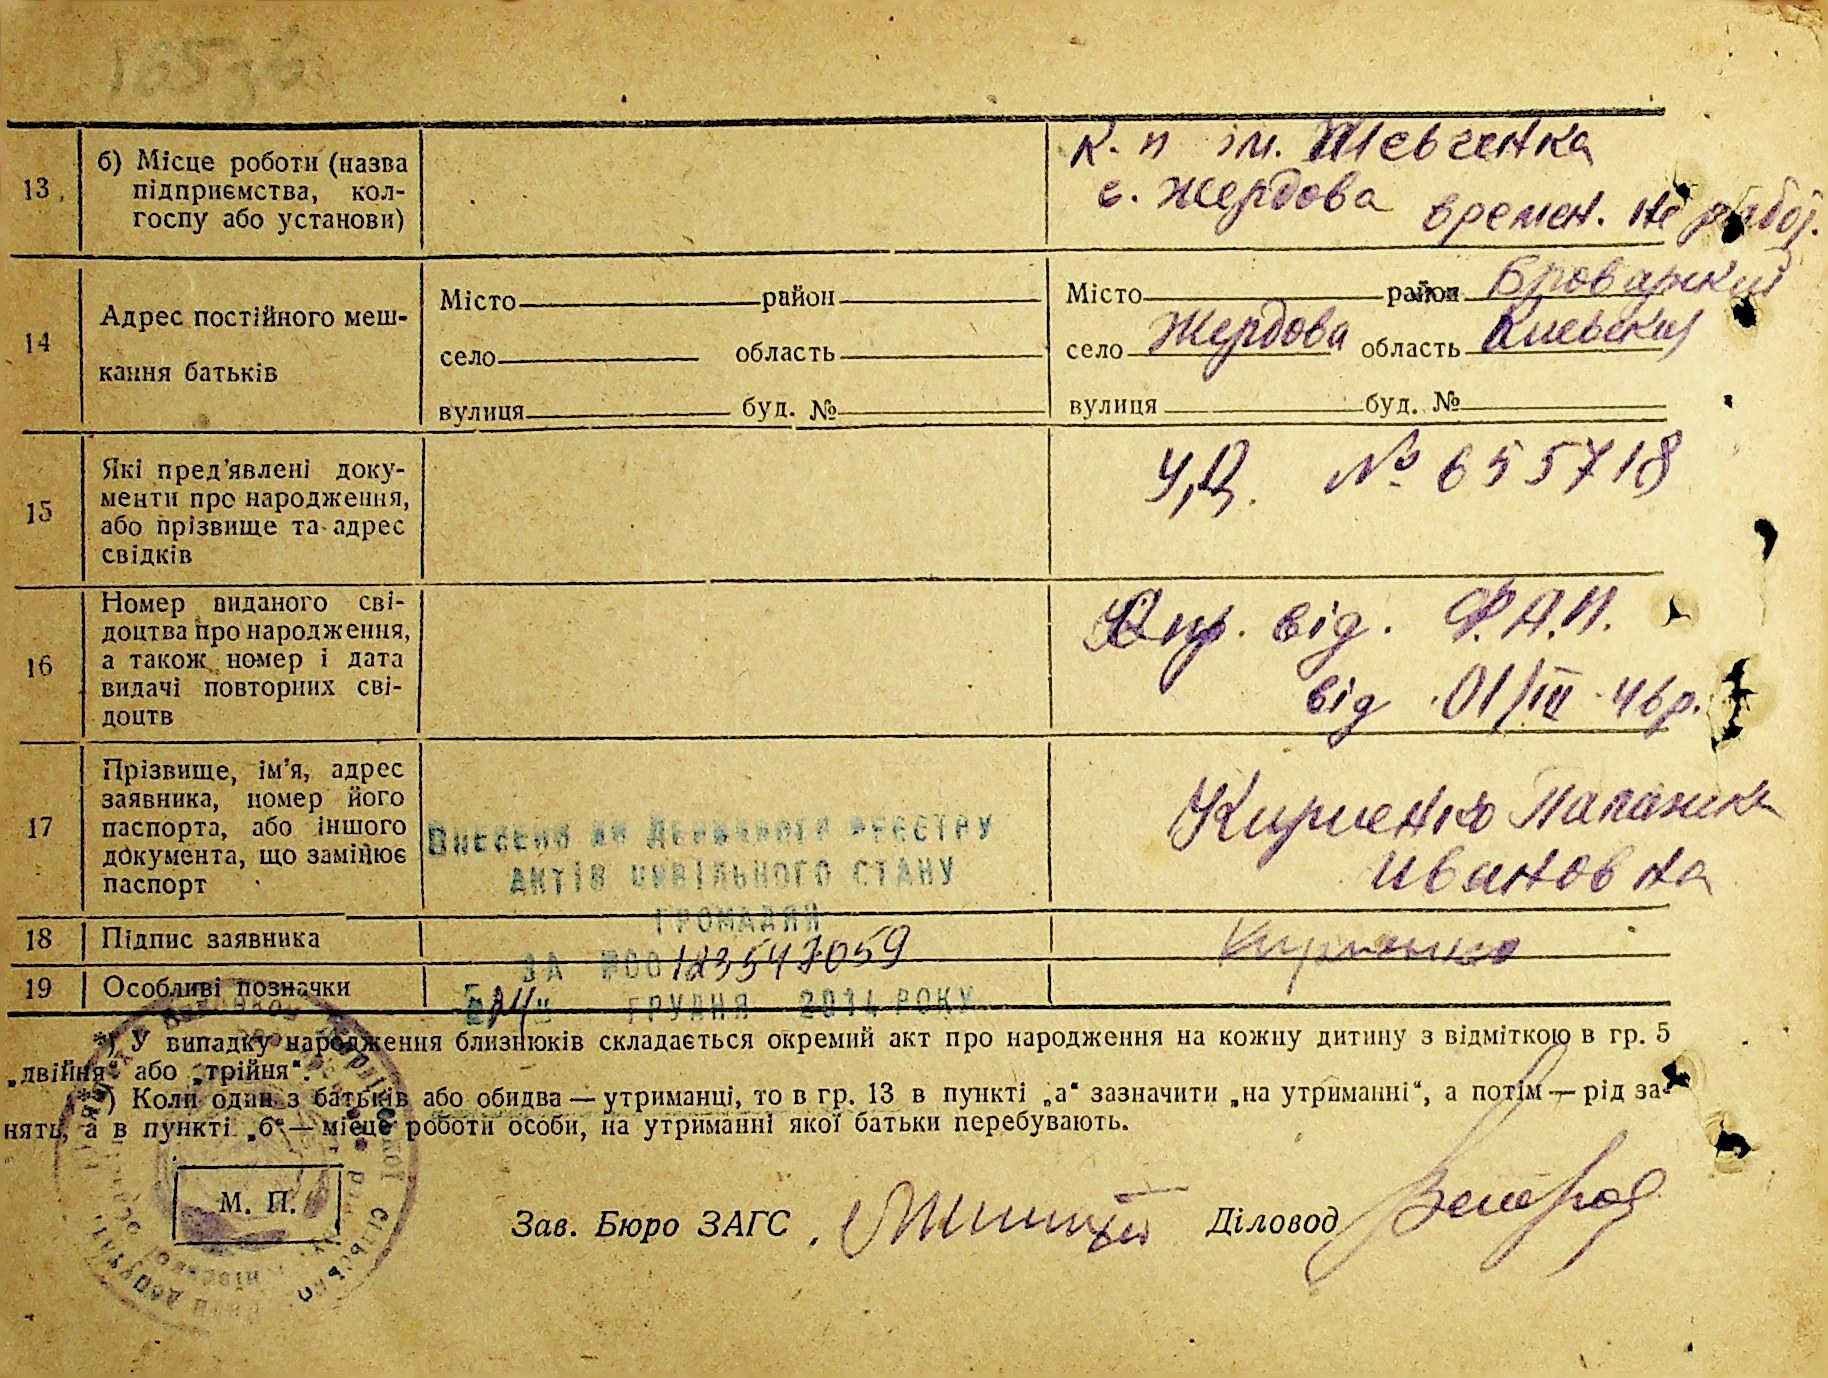 13
б) Місце роботи (назва
підприємства, кол-
госпу або установи)
к. п ім. Шевченка
с. Жердова времен. не работ.
14
Адрес постійного меш-
кання батьків
Місто район
село область
вулиця буд. №
Місто район Броварский
село Жердова область Киевский
вулиця буд. №
15
Які пред'явлені доку-
менти про народження,
або прізвище та адрес
свідків
У,Д. № 655718
16
Номер виданого сві-
доцтва про народження,
а також номер і дата
видачі повторних сві-
доцтв
від. Ф.А.П.
від 01/III 46р.
17
Прізвище, ім'я, адрес
заявника, номер його
паспорта, або іншого
документа, що замінює
паспорт
Внесено до Державного реєстру
актів цивільного стану
громадян
за №00123547059
грудня 2014 року
Кириенко
Ивановна
18
Підпис заявника
Кириенко
19
Особливі позначки
*) У випадку народження близнюків складається окремий акт про народження на кожну дитину з відміткою в гр. 5
„двійня“ або „трійня“.
*) Коли один з батьків або обидва — утриманці, то в гр. 13 в пункті „а“ зазначити „на утриманні“, а потім — рід за-
нять, а в пункті „б“ — місце роботи особи, на утриманні якої батьки перебувають.
М. П.
Зав. Бюро ЗАГС
Діловод